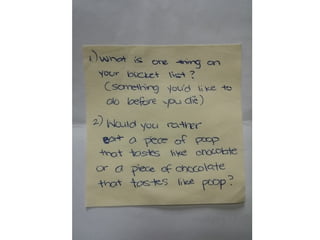 1) What is one thing on
your bucket list?
(something you'd like to
do before you die)
2) Would you rather
eat a piece of poop
that tastes like chocolate
or a piece of chocolate
that tastes like poop?